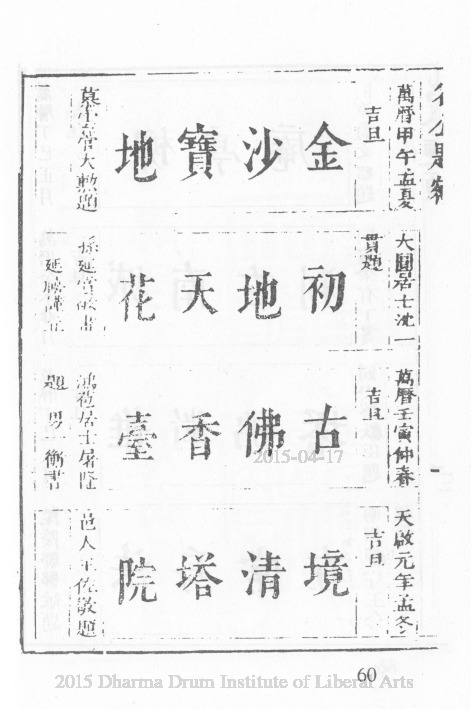 萬曆甲午孟夏
吉旦
金沙寶地
大勲題
大圓居士沈一
貫題
初地天花
孫延賞敬書
萬曆壬寅仲春
吉旦
古佛香臺
鴻苞居士屠隆
題 男一衡書
天啟元年孟冬
吉旦
境清塔院
邑人王佐敬題
2015-04-17
60
2015 Dharma Drum Institute of Liberal Arts